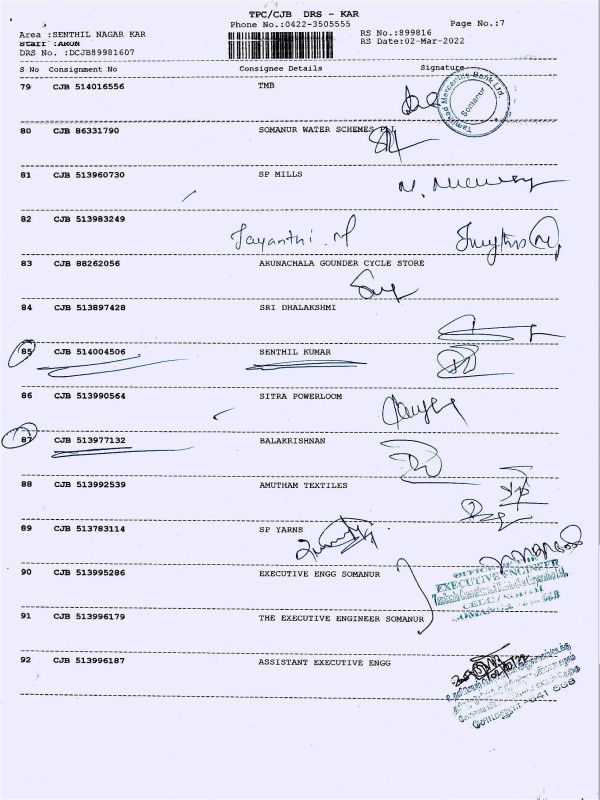 TPC/CJB DRS - KAR
Phone No.:0422-3505555 Page No.:7
Area :SENTHIL NAGAR KAR RS No.:899816
Staff :ARUN RS Date:02-Mar-2022
DRS No. :DCJB89981607
S No Consignment No Consignee Details Signature
79 CJB 514016556 TMB
Tamilnad Mercantile Bank Ltd.
Somanur
80 CJB 86331790 SOMANUR WATER SCHEMES
81 CJB 513960730 SP MILLS
82 CJB 513983249 Jayanthi. M
83 CJB 88262056 ARUNACHALA GOUNDER CYCLE STORE
84 CJB 513897428 SRI DHALAKSHMI
85 CJB 514004506 SENTHIL KUMAR
86 CJB 513990564 SITRA POWERLOOM
87 CJB 513977132 BALAKRISHNAN
88 CJB 513992539 AMUTHAM TEXTILES
89 CJB 513783114 SP YARNS
90 CJB 513995286 EXECUTIVE ENGG SOMANUR
OFFICE OF THE
EXECUTIVE ENGINEER
91 CJB 513996179 THE EXECUTIVE ENGINEER SOMANUR
92 CJB 513996187 ASSISTANT EXECUTIVE ENGG